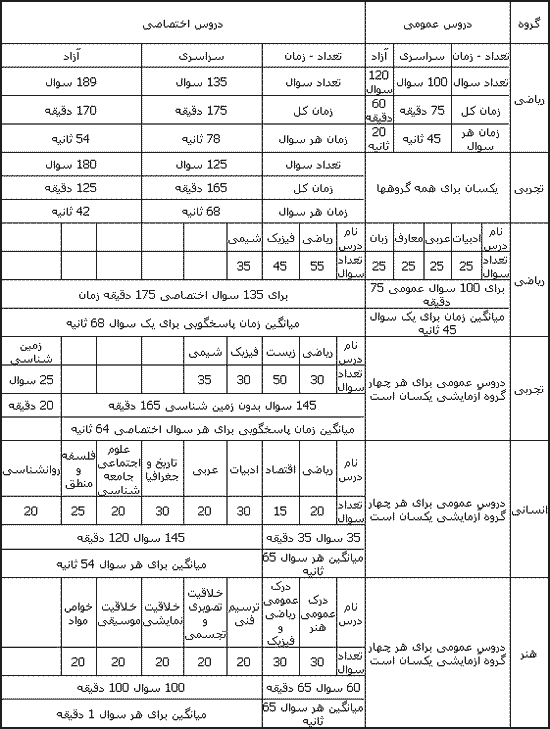 گروه دروس عمومی دروس اختصاصی
ریاضی
تعداد - زمان سراسری آزاد تعداد - زمان سراسری آزاد
تعداد سوال 100 سوال 120 سوال تعداد سوال 135 سوال 189 سوال
زمان کل 75 دقیقه 60 دقیقه زمان کل 175 دقیقه 170 دقیقه
زمان هر سوال 45 ثانیه 20 ثانیه زمان هر سوال 78 ثانیه 54 ثانیه
تجربی یکسان برای همه گروهها
تعداد سوال 125 سوال 180 سوال
زمان کل 165 دقیقه 125 دقیقه
زمان هر سوال 68 ثانیه 42 ثانیه
ریاضی
نام درس ادبیات عربی معارف زبان نام درس ریاضی فیزیک شیمی
تعداد سوال 25 25 25 25 تعداد سوال 55 45 35
برای 100 سوال عمومی 75 دقیقه برای 135 سوال اختصاصی 175 دقیقه زمان
میانگین زمان برای یک سوال 45 ثانیه میانگین زمان پاسخگویی برای یک سوال 68 ثانیه
تجربی دروس عمومی برای هر چهار گروه آزمایشی یکسان است
نام درس ریاضی زیست فیزیک شیمی زمین شناسی
تعداد سوال 30 50 30 35 25 سوال
145 سوال بدون زمین شناسی 165 دقیقه 20 دقیقه
میانگین زمان پاسخگویی برای هر سوال اختصاصی 64 ثانیه
انسانی دروس عمومی برای هر چهار گروه آزمایشی یکسان است
نام درس ریاضی اقتصاد ادبیات عربی تاریخ و جغرافیا علوم اجتماعی جامعه شناسی فلسفه و منطق روانشناسی
تعداد سوال 20 15 30 20 30 20 25 20
35 سوال 35 دقیقه 145 سوال 120 دقیقه
میانگین هر سوال 65 ثانیه میانگین برای هر سوال 54 ثانیه
هنر دروس عمومی برای هر چهار گروه آزمایشی یکسان است
نام درس درک عمومی هنر درک عمومی ریاضی و فیزیک ترسیم فنی خلاقیت تصویری و تجسمی خلاقیت نمایشی خلاقیت موسیقی خواص مواد
تعداد سوال 30 30 20 20 20 20 20
60 سوال 65 دقیقه 100 سوال 100 دقیقه
میانگین هر سوال 65 ثانیه میانگین برای هر سوال 1 دقیقه